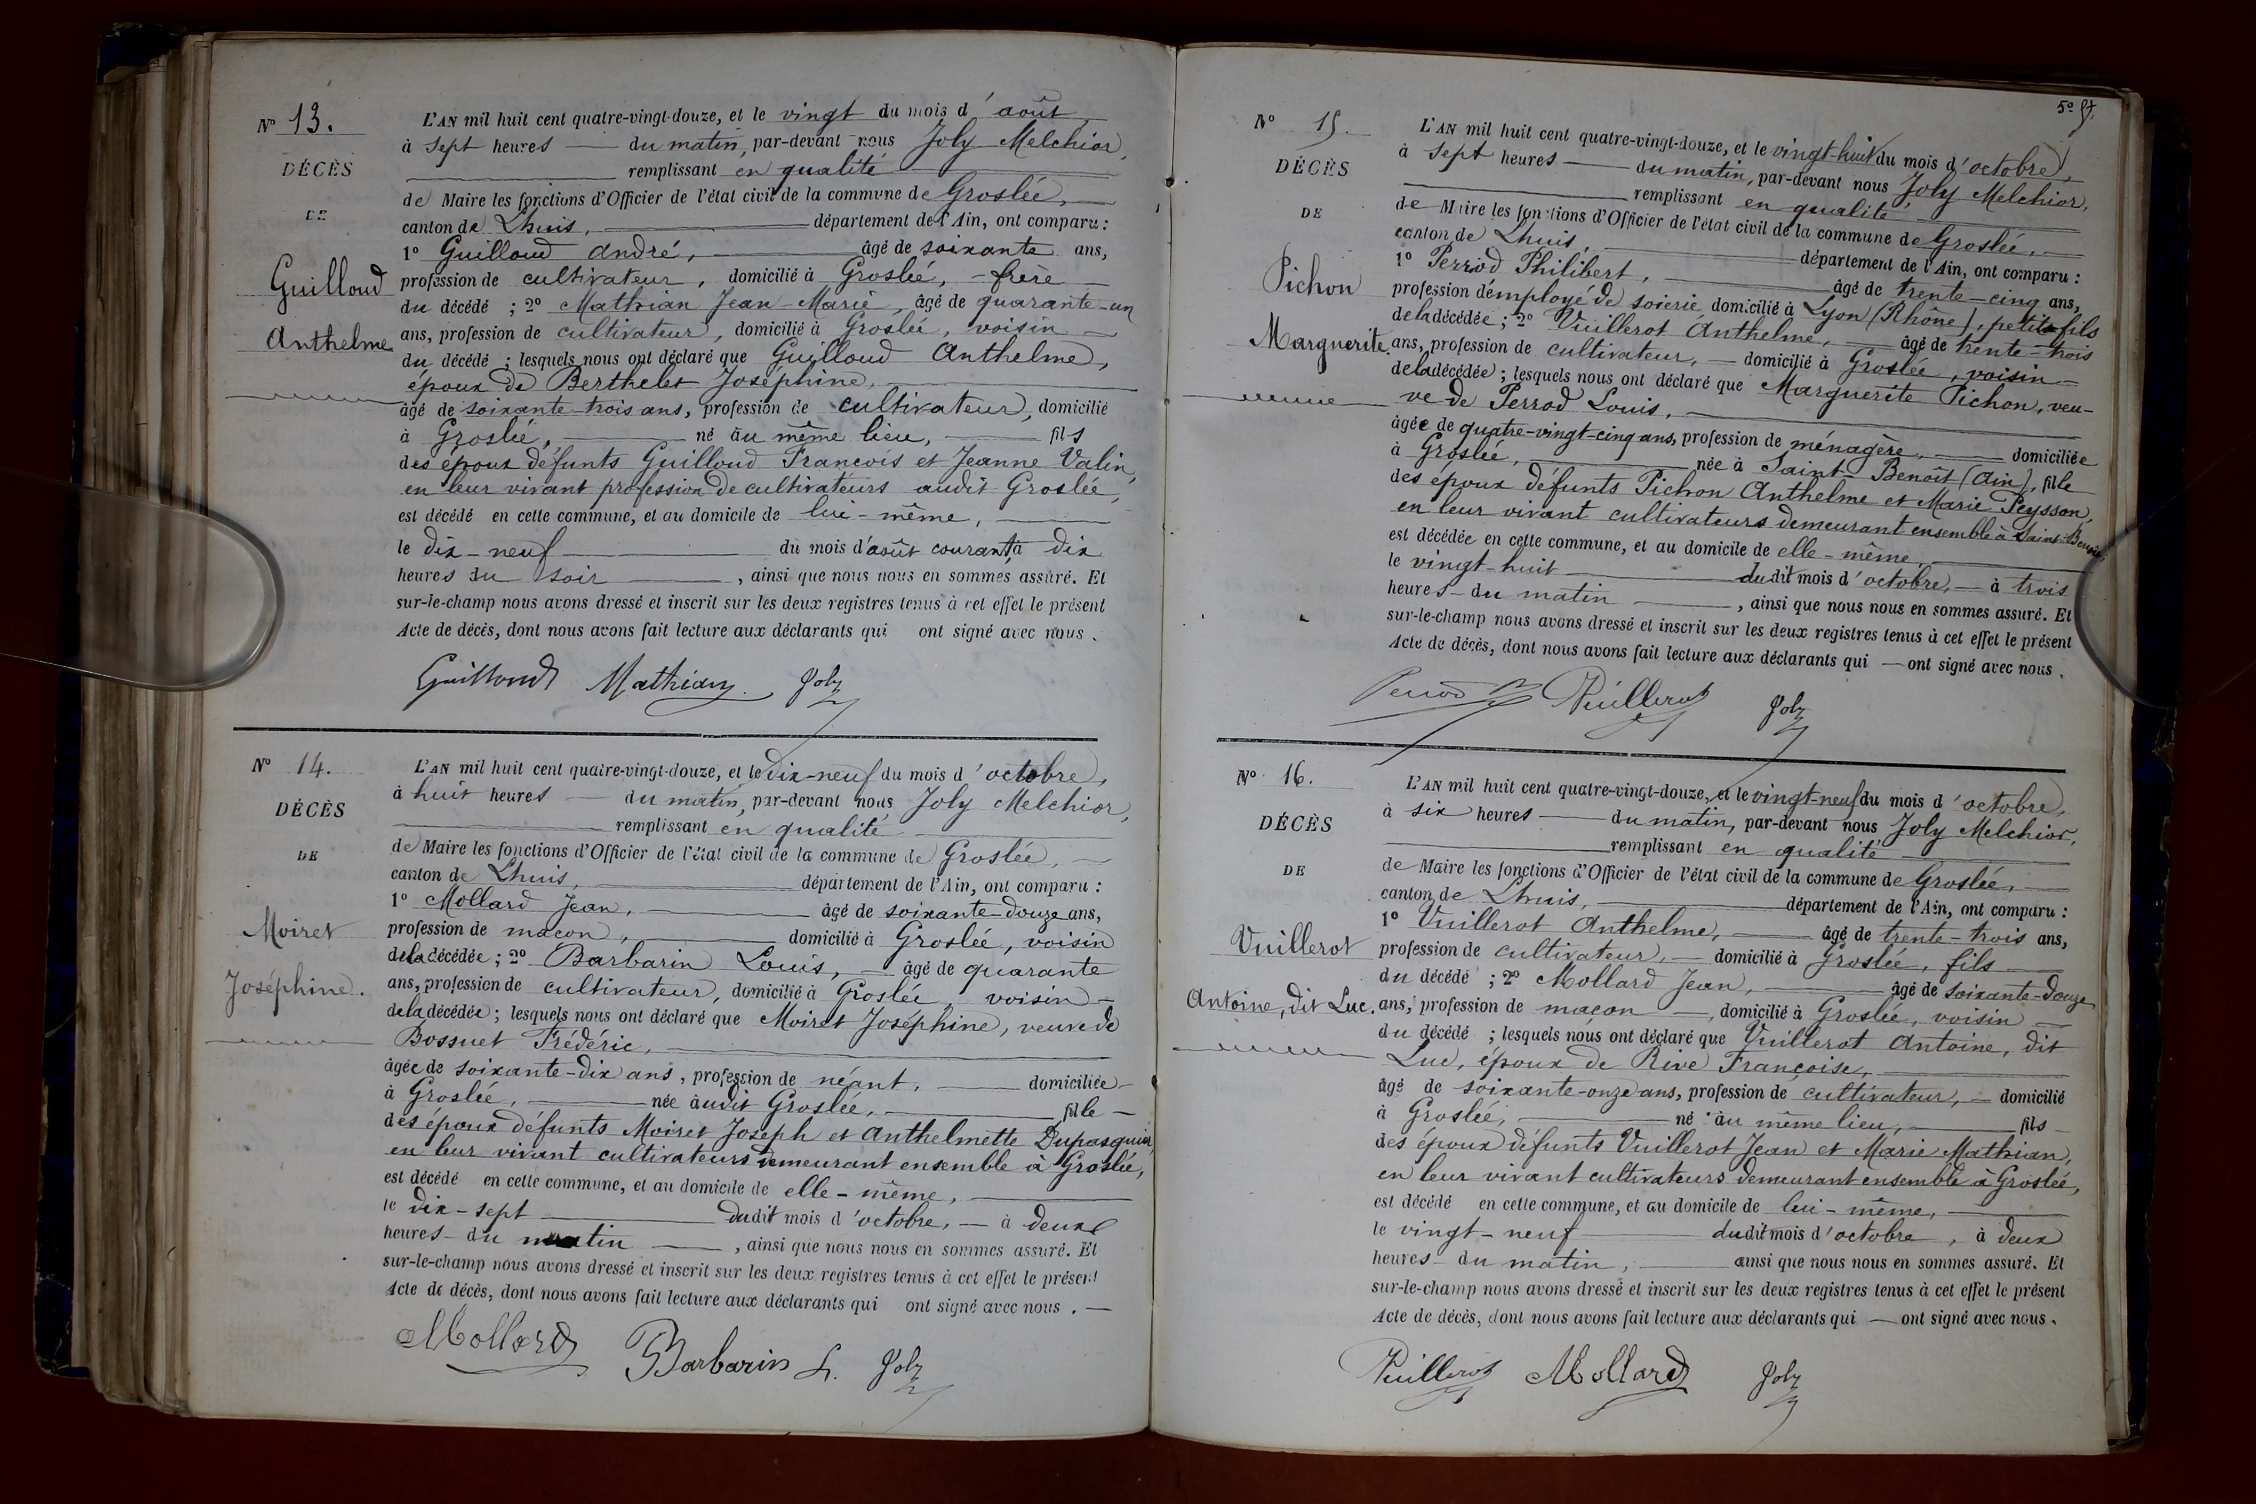 N° 13.
DÉCÈS
DE
Guilloud
Anthelme
L'AN mil huit cent quatre-vingt-douze, et le vingt du mois d'août,
à sept heures du matin, par-devant nous Joly Melchior,
remplissant en qualité
de Maire les fonctions d'Officier de l'état civil de la commune de Groslée,
canton de Lhuis, département de l'Ain, ont comparu :
1° Guilloud André, âgé de soixante ans,
profession de cultivateur, domicilié à Groslée, - frère
du décédé ; 2° Mathian Jean-Marie, âgé de quarante-un
ans, profession de cultivateur, domicilié à Groslée, voisin
du décédé ; lesquels nous ont déclaré que Guilloud Anthelme,
époux de Berthelet Joséphine,
âgé de soixante-trois ans, profession de cultivateur, domicilié
à Groslée, né au même lieu, fils
des époux défunts Guilloud François et Jeanne Valin,
en leur vivant profession de cultivateurs audit Groslée,
est décédé en cette commune, et au domicile de lui-même,
le dix-neuf du mois d'août courant, à dix
heures du soir, ainsi que nous nous en sommes assuré. Et
sur-le-champ nous avons dressé et inscrit sur les deux registres tenus à cet effet le présent
Acte de décès, dont nous avons fait lecture aux déclarants qui ont signé avec nous.
Guilloud Mathian Joly
N° 14.
DÉCÈS
DE
Moiret
Joséphine.
L'AN mil huit cent quatre-vingt-douze, et le dix-neuf du mois d'octobre,
à huit heures du matin, par-devant nous Joly Melchior,
remplissant en qualité
de Maire les fonctions d'Officier de l'état civil de la commune de Groslée,
canton de Lhuis, département de l'Ain, ont comparu :
1° Mollard Jean, âgé de soixante-douze ans,
profession de maçon, domicilié à Groslée, voisin
de la décédée ; 2° Barbarin Louis, âgé de quarante
ans, profession de cultivateur, domicilié à Groslée, voisin
de la décédée ; lesquels nous ont déclaré que Moiret Joséphine, veuve de
Bossuet Frédéric,
âgée de soixante-dix ans, profession de néant, domiciliée
à Groslée, née audit Groslée, fille
des époux défunts Moiret Joseph et Anthelmette Dupasquier,
en leur vivant cultivateurs demeurant ensemble à Groslée,
est décédé en cette commune, et au domicile de elle-même,
le dix-sept dudit mois d'octobre, à deux
heures du matin, ainsi que nous nous en sommes assuré. Et
sur-le-champ nous avons dressé et inscrit sur les deux registres tenus à cet effet le présent
Acte de décès, dont nous avons fait lecture aux déclarants qui ont signé avec nous.
Mollard Barbarin L. Joly
N° 15.
DÉCÈS
DE
Pichon
Marguerite.
L'AN mil huit cent quatre-vingt-douze, et le vingt-huit du mois d'octobre,
à sept heures du matin, par-devant nous Joly Melchior,
remplissant en qualité
de Maire les fonctions d'Officier de l'état civil de la commune de Groslée,
canton de Lhuis, département de l'Ain, ont comparu :
1° Perrod Philibert, âgé de trente-cinq ans,
profession d'employé de soierie, domicilié à Lyon (Rhône), petit-fils
de la décédée ; 2° Vuillerot Anthelme, âgé de trente-trois
ans, profession de cultivateur, domicilié à Groslée, voisin
de la décédée ; lesquels nous ont déclaré que Marguerite Pichon, veu-
ve de Perrod Louis,
âgée de quatre-vingt-cinq ans, profession de ménagère, domiciliée
à Groslée, née à Saint-Benoît (Ain), fille
des époux défunts Pichon Anthelme et Marie Peysson,
en leur vivant cultivateurs demeurant ensemble à Saint-Benoît,
est décédée en cette commune, et au domicile de elle-même,
le vingt-huit dudit mois d'octobre, à trois
heures du matin, ainsi que nous nous en sommes assuré. Et
sur-le-champ nous avons dressé et inscrit sur les deux registres tenus à cet effet le présent
Acte de décès, dont nous avons fait lecture aux déclarants qui ont signé avec nous.
Perrod Vuillerot Joly
N° 16.
DÉCÈS
DE
Vuillerot
Antoine, dit Luc.
L'AN mil huit cent quatre-vingt-douze, et le vingt-neuf du mois d'octobre,
à six heures du matin, par-devant nous Joly Melchior,
remplissant en qualité
de Maire les fonctions d'Officier de l'état civil de la commune de Groslée,
canton de Lhuis, département de l'Ain, ont comparu :
1° Vuillerot Anthelme, âgé de trente-trois ans,
profession de cultivateur, domicilié à Groslée, fils
du décédé ; 2° Mollard Jean, âgé de soixante-douze
ans, profession de maçon, domicilié à Groslée, voisin
du décédé ; lesquels nous ont déclaré que Vuillerot Antoine, dit
Luc, époux de Rive Françoise,
âgé de soixante-onze ans, profession de cultivateur, domicilié
à Groslée, né au même lieu, fils
des époux défunts Vuillerot Jean et Marie Mathian,
en leur vivant cultivateurs demeurant ensemble à Groslée,
est décédé en cette commune, et au domicile de lui-même,
le vingt-neuf dudit mois d'octobre, à deux
heures du matin, ainsi que nous nous en sommes assuré. Et
sur-le-champ nous avons dressé et inscrit sur les deux registres tenus à cet effet le présent
Acte de décès, dont nous avons fait lecture aux déclarants qui ont signé avec nous.
Vuillerot Mollard Joly